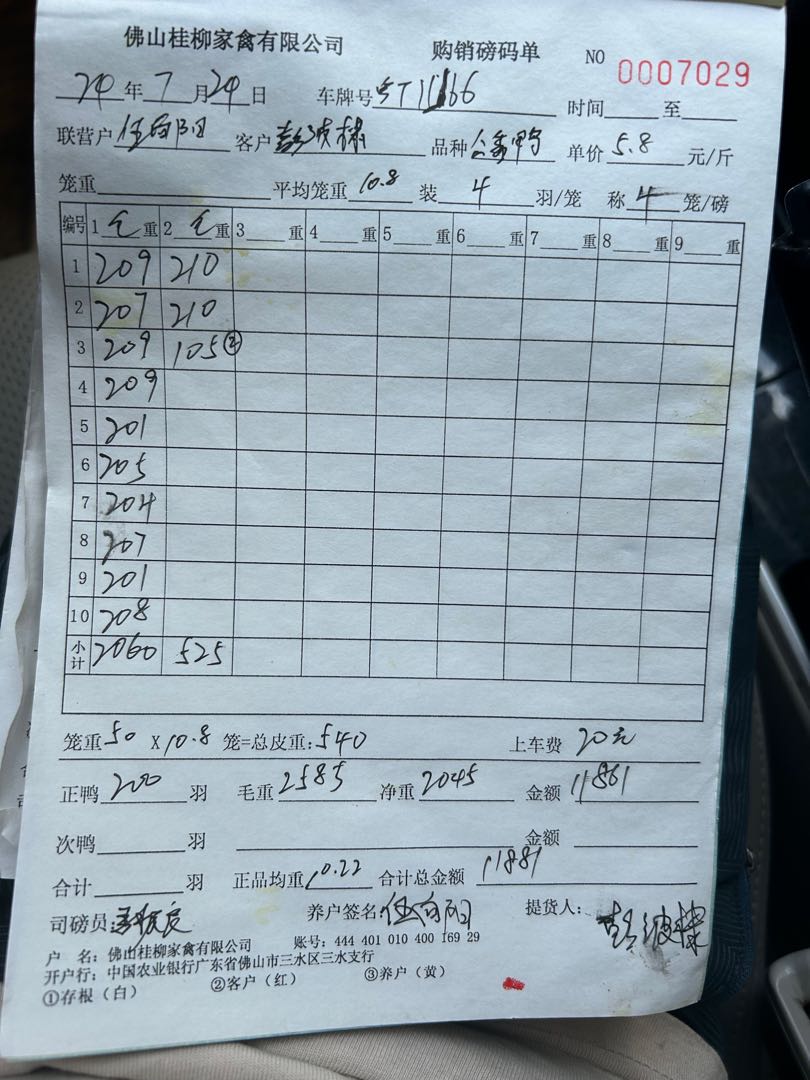 佛山桂柳家禽有限公司 购销磅码单 NO 0007029
24年7月24日 车牌号 时间 至
联营户 伍向阳 客户 彭波棣 品种 单价 5.8 元/斤
笼重 平均笼重 10.8 装 4 羽/笼 称 4 笼/磅
编号 1 毛 重 2 毛 重 3 重 4 重 5 重 6 重 7 重 8 重 9 重
1 209 210
2 207 210
3 209 105②
4 209
5 201
6 205
7 204
8 207
9 201
10 208
小计 2060 525
笼重 50 X 10.8 笼=总皮重: 540 上车费 20元
正鸭 200 羽 毛重 2585 净重 2045 金额 11861
次鸭 羽 金额
合计 羽 正品均重 10.22 合计总金额 11881
司磅员: 养户签名: 伍向阳 提货人: 彭波棣
户 名: 佛山桂柳家禽有限公司 账号: 444 401 010 400 169 29
开户行: 中国农业银行广东省佛山市三水区三水支行
①存根（白） ②客户（红） ③养户（黄）